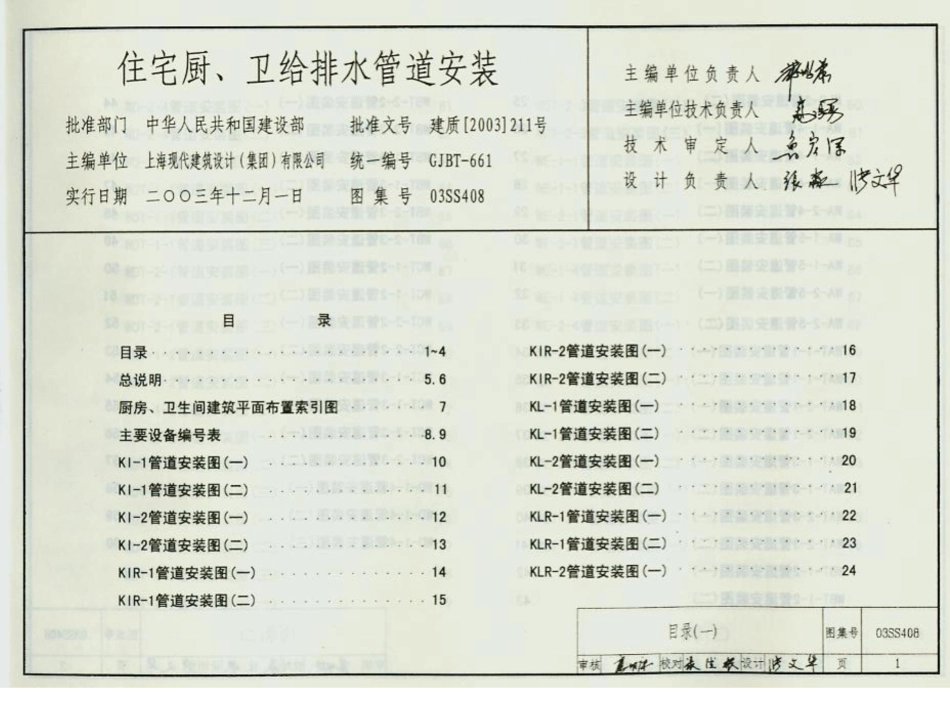 住宅厨、卫给排水管道安装
批准部门 中华人民共和国建设部 批准文号 建质[2003]211号
主编单位 上海现代建筑设计(集团)有限公司 统一编号 GJBT-661
实行日期 二〇〇三年十二月一日 图集号 03SS408
主编单位负责人
主编单位技术负责人
技术审定人
设计负责人 洪文华
目 录
目录 1~4
总说明 5.6
厨房、卫生间建筑平面布置索引图 7
主要设备编号表 8.9
KI-1管道安装图(一) 10
KI-1管道安装图(二) 11
KI-2管道安装图(一) 12
KI-2管道安装图(二) 13
KIR-1管道安装图(一) 14
KIR-1管道安装图(二) 15
KIR-2管道安装图(一) 16
KIR-2管道安装图(二) 17
KL-1管道安装图(一) 18
KL-1管道安装图(二) 19
KL-2管道安装图(一) 20
KL-2管道安装图(二) 21
KLR-1管道安装图(一) 22
KLR-1管道安装图(二) 23
KLR-2管道安装图(一) 24
目录(一) 图集号 03SS408
审核 校对 设计 洪文华 页 1